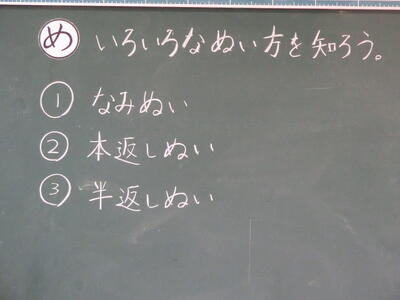 め いろいろなぬい方を知ろう。
① なみぬい
② 本返しぬい
③ 半返しぬい